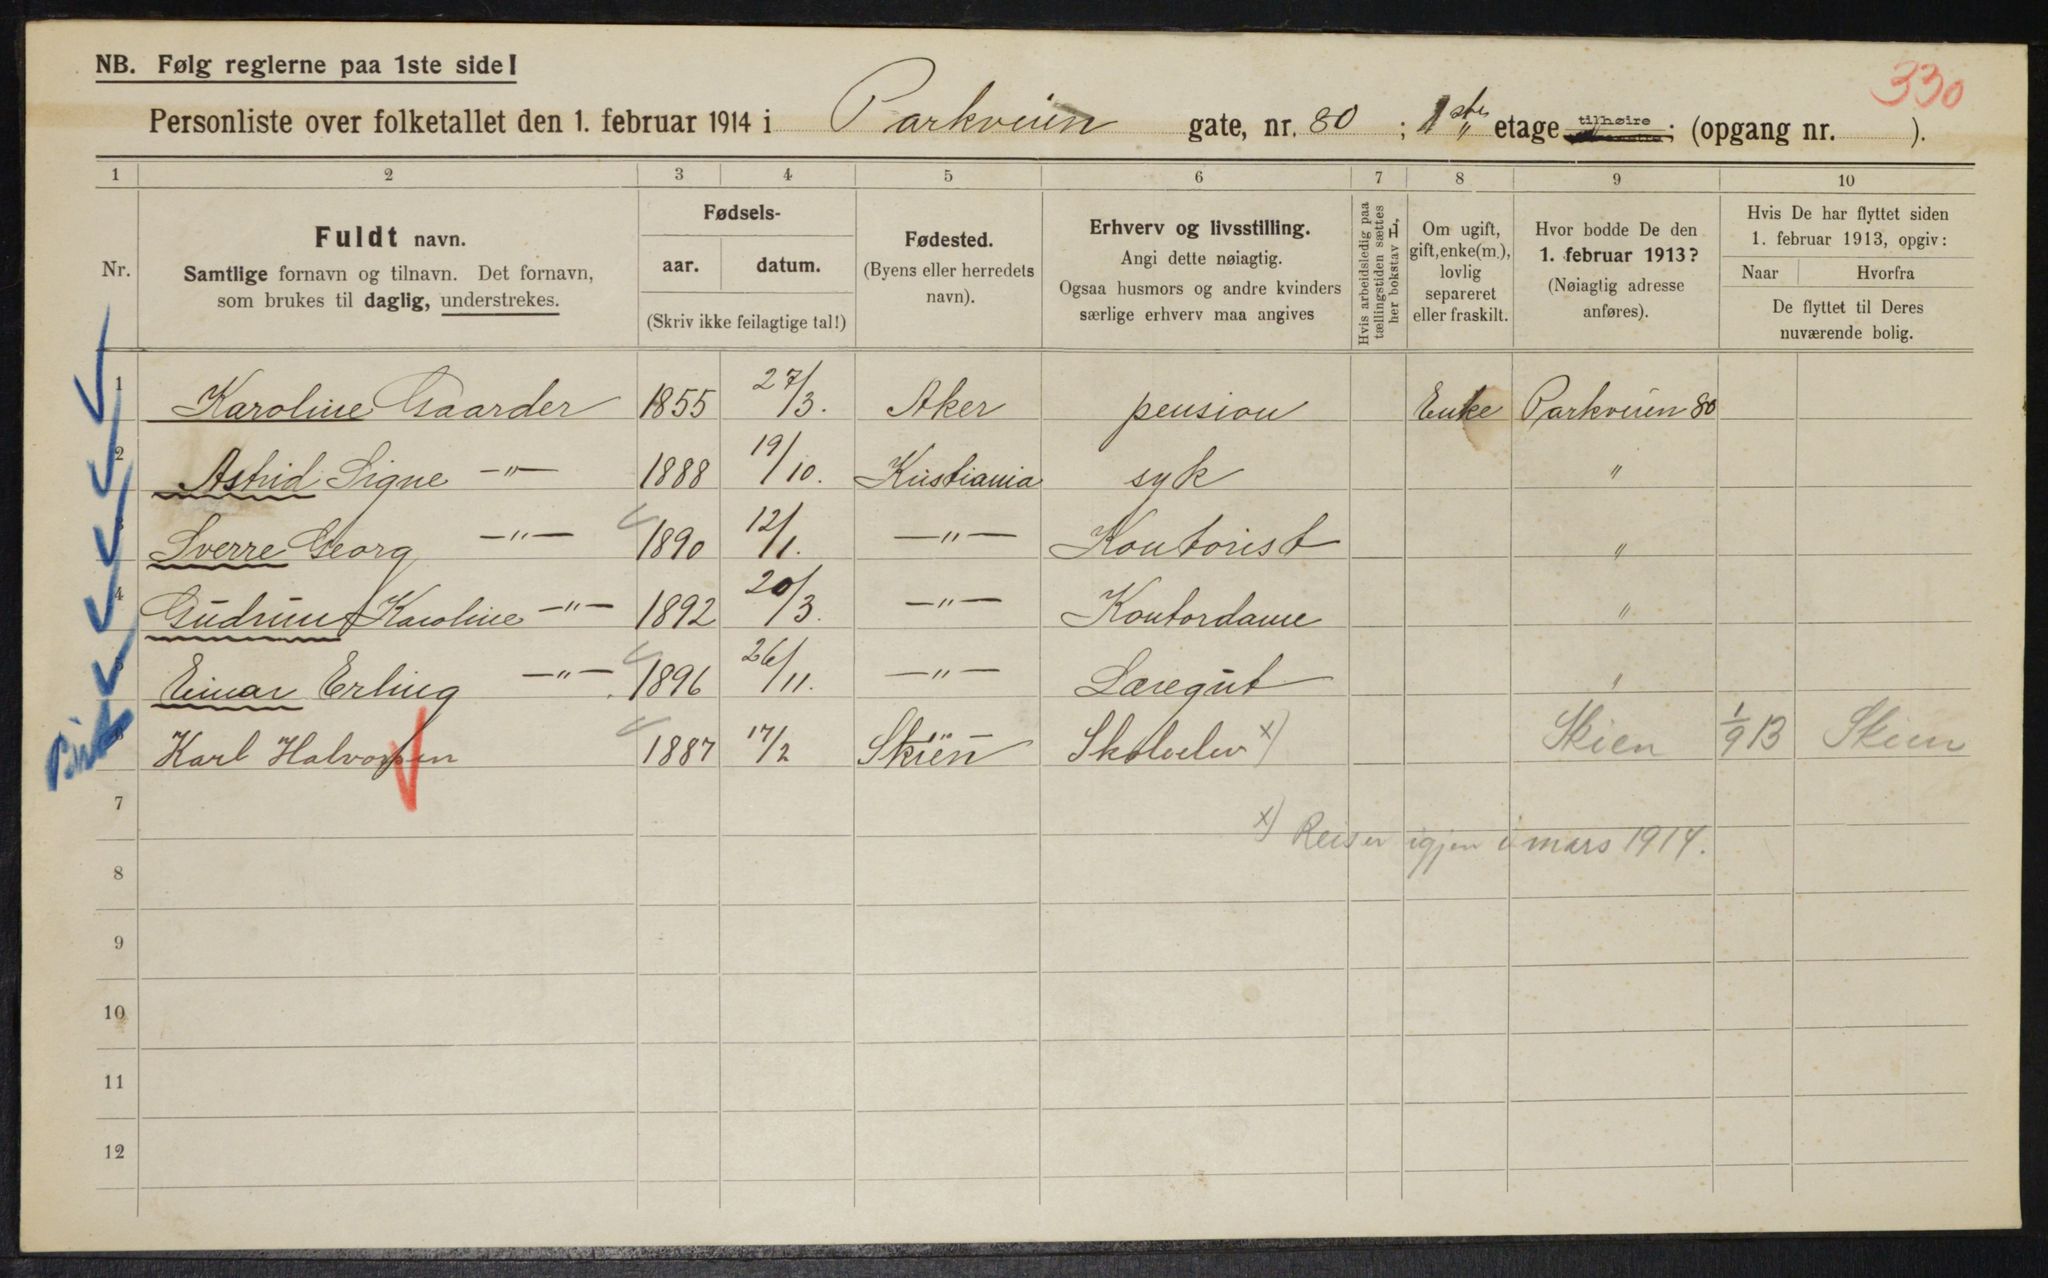 NB. Følg reglerne paa 1ste side!
330
Personliste over folketallet den 1. februar 1914 i Parkveien gate, nr. 80 ; 1ste etage tilhøire ; (opgang nr. ).
1 2 3 4 5 6 7 8 9 10
Nr.
Fuldt navn.
Samtlige fornavn og tilnavn. Det fornavn,
som brukes til daglig, understrekes.
Fødsels-
aar. datum.
(Skriv ikke feilagtige tal!)
Fødested.
(Byens eller herredets
navn).
Erhverv og livsstilling.
Angi dette nøiagtig.
Ogsaa husmors og andre kvinders
særlige erhverv maa angives
Hvis arbeidsledig paa
tællingstiden sættes
her bokstav L,
Om ugift,
gift, enke(m.),
lovlig
separeret
eller fraskilt.
Hvor bodde De den
1. februar 1913?
(Nøiagtig adresse
anføres).
Hvis De har flyttet siden
1. februar 1913, opgiv:
Naar Hvorfra
De flyttet til Deres
nuværende bolig.
1 Karoline Gaarder 1855 27/3. Aker pension Enke Parkveien 80
2 Astrid Signe —"— 1888 19/10. Kristiania syk "
3 Sverre Georg —"— 1890 12/1. —"— Kontorist "
4 Gudrun Karoline —"— 1892 20/3. —"— Kontordame "
5 Einar Erling —"— 1896 26/11. —"— Læregut "
6 Karl Halvorsen 1887 17/2 Skien Skoleelev x) Skien 1/9 13 Skien
7
x) Reiser igjen i mars 1914.
8
9
10
11
12